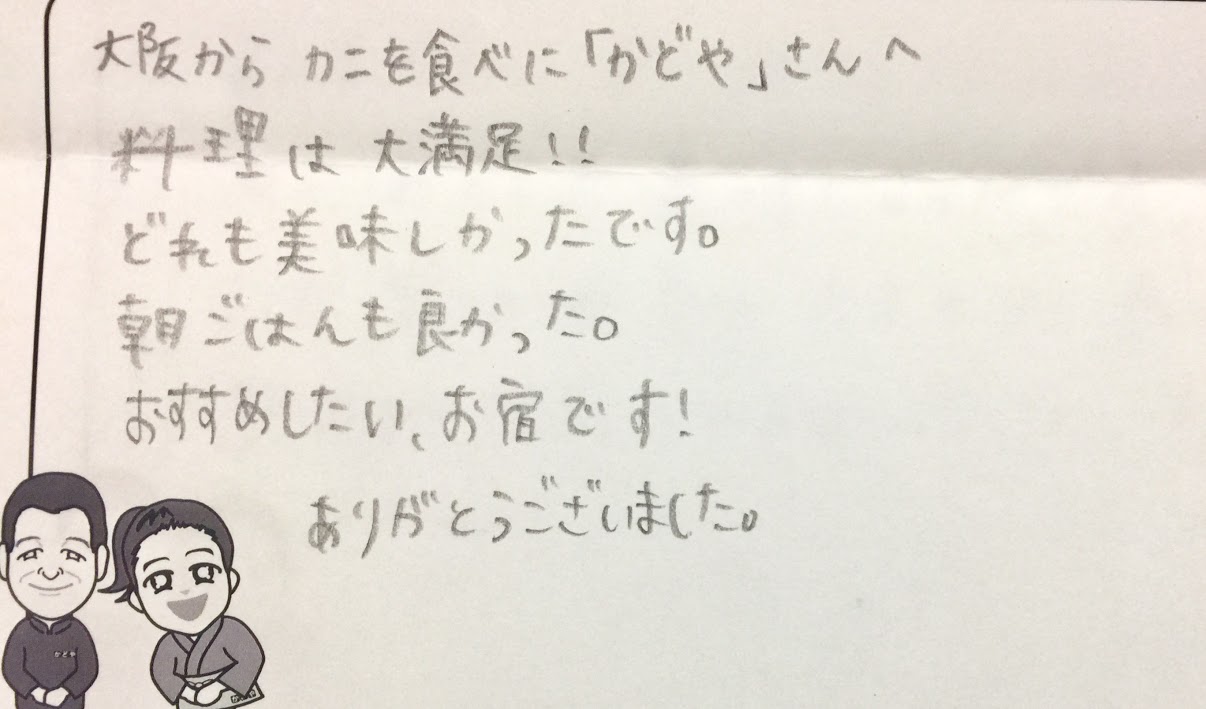 大阪から カニを食べに「かどや」さんへ
料理は 大満足!!
どれも美味しかったです。
朝ごはんも良かった。
おすすめしたい、お宿です!
ありがとうございました。
かどや